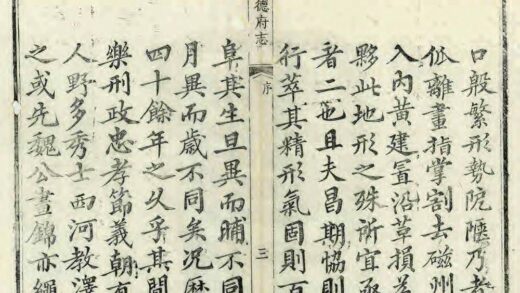 口般繁形勢阨隘乃
仳離畫指掌割去磁州
入内黄建置沿革損益
夥此地形之殊所宜亟
者二也且夫昌期協則
行萃其精形氣固則百
德府志
序
三
阜其生旦異而晡不同
月異而歲不同矣况歷
四十餘年之久乎其間
樂刑政忠孝節義朝有
人野多秀士西河教澤
之或先魏公晝錦亦繩